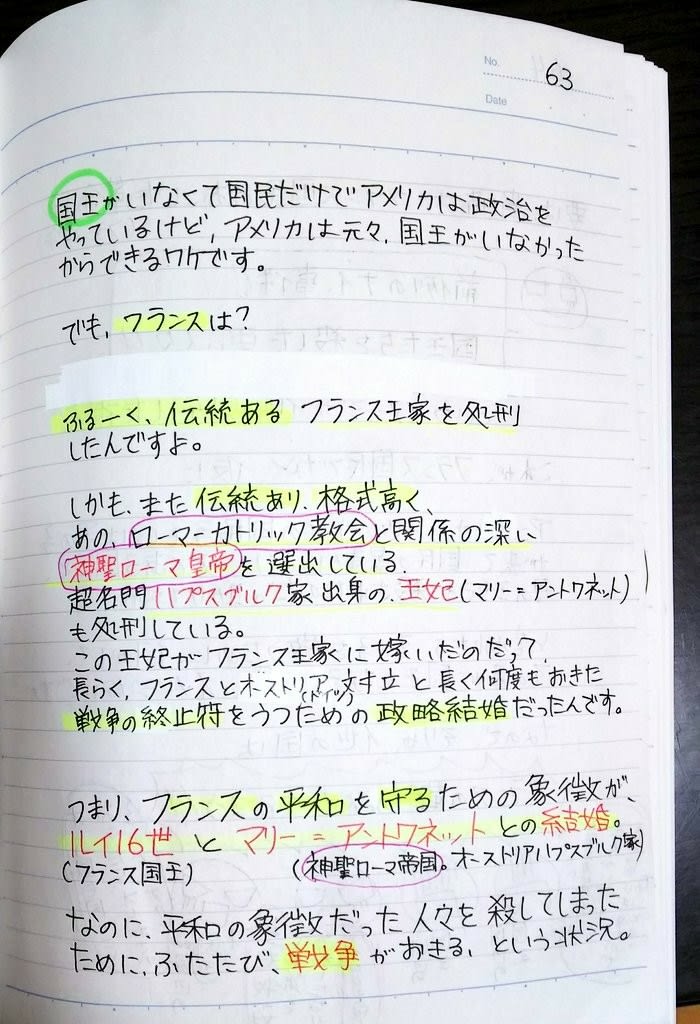 No. 63
Date
国王がいなくて国民だけでアメリカは政治を
やっているけど、アメリカは元々、国王がいなかった
からできるワケです。
でも、フランスは?
ふるーく、伝統ある フランス王家を処刑
したんですよ。
しかも、また伝統あり、格式高く、
あの、ローマーカトリック教会と関係の深い
神聖ローマ皇帝を選出している、
超名門ハプスブルク家出身の、王妃(マリー=アントワネット)
も処刑している。
この王妃がフランス王家に嫁いだのだって、
長らく、フランスとオーストリア(ドイツ)対立と長く何度もおきた
戦争の終止符をうつための政略結婚だったんです。
つまり、フランスの平和を守るための象徴が、
ルイ16世とマリー=アントワネットとの結婚。
(フランス国王) (神聖ローマ帝国。オーストリアハプスブルク家)
なのに、平和の象徴だった人々を殺してしまった
ために、ふたたび、戦争がおきる、という状況。